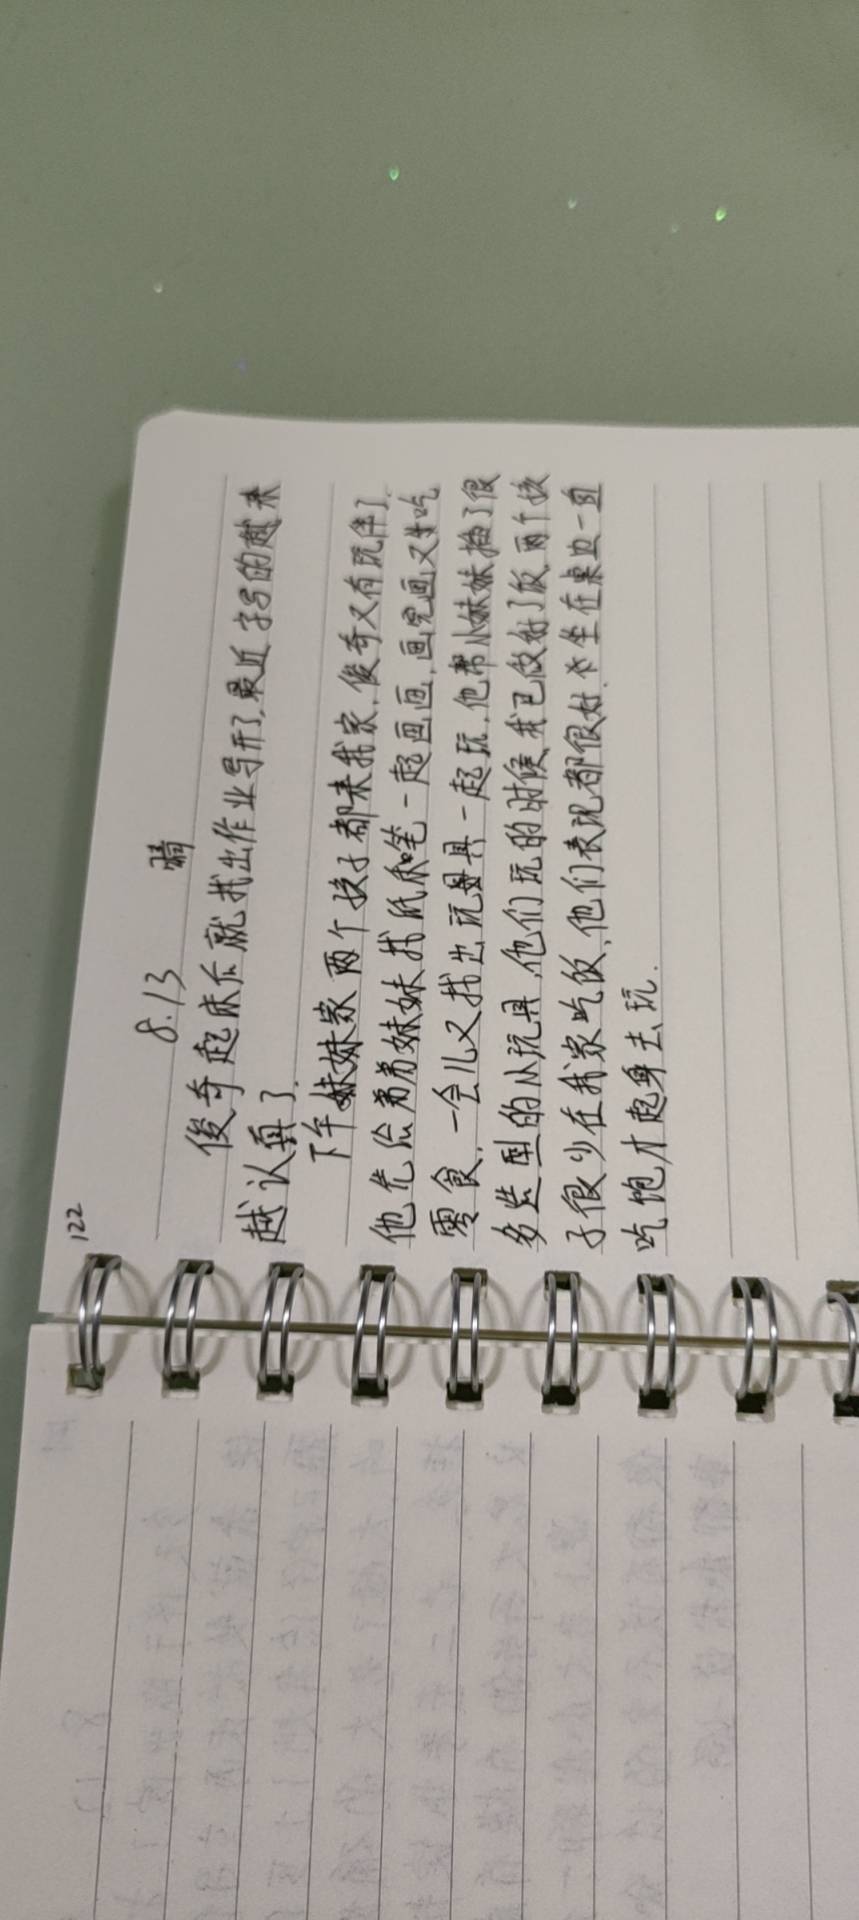 122
8.13 晴
俊奇起床后就找出作业写开了,最近字写的越来
越认真了.
下午妹妹家两个孩子都来我家,俊奇又有玩伴了.
他先给弟弟妹妹找纸和笔一起画画,画完画又吃
零食,一会儿又找出玩具一起玩,他帮小妹妹插了很
多造型的小玩具,他们玩的时候我已做好了饭,两个孩
子很少在我家吃饭,他们表现都很好,坐在桌边一直
吃饱才起身去玩.